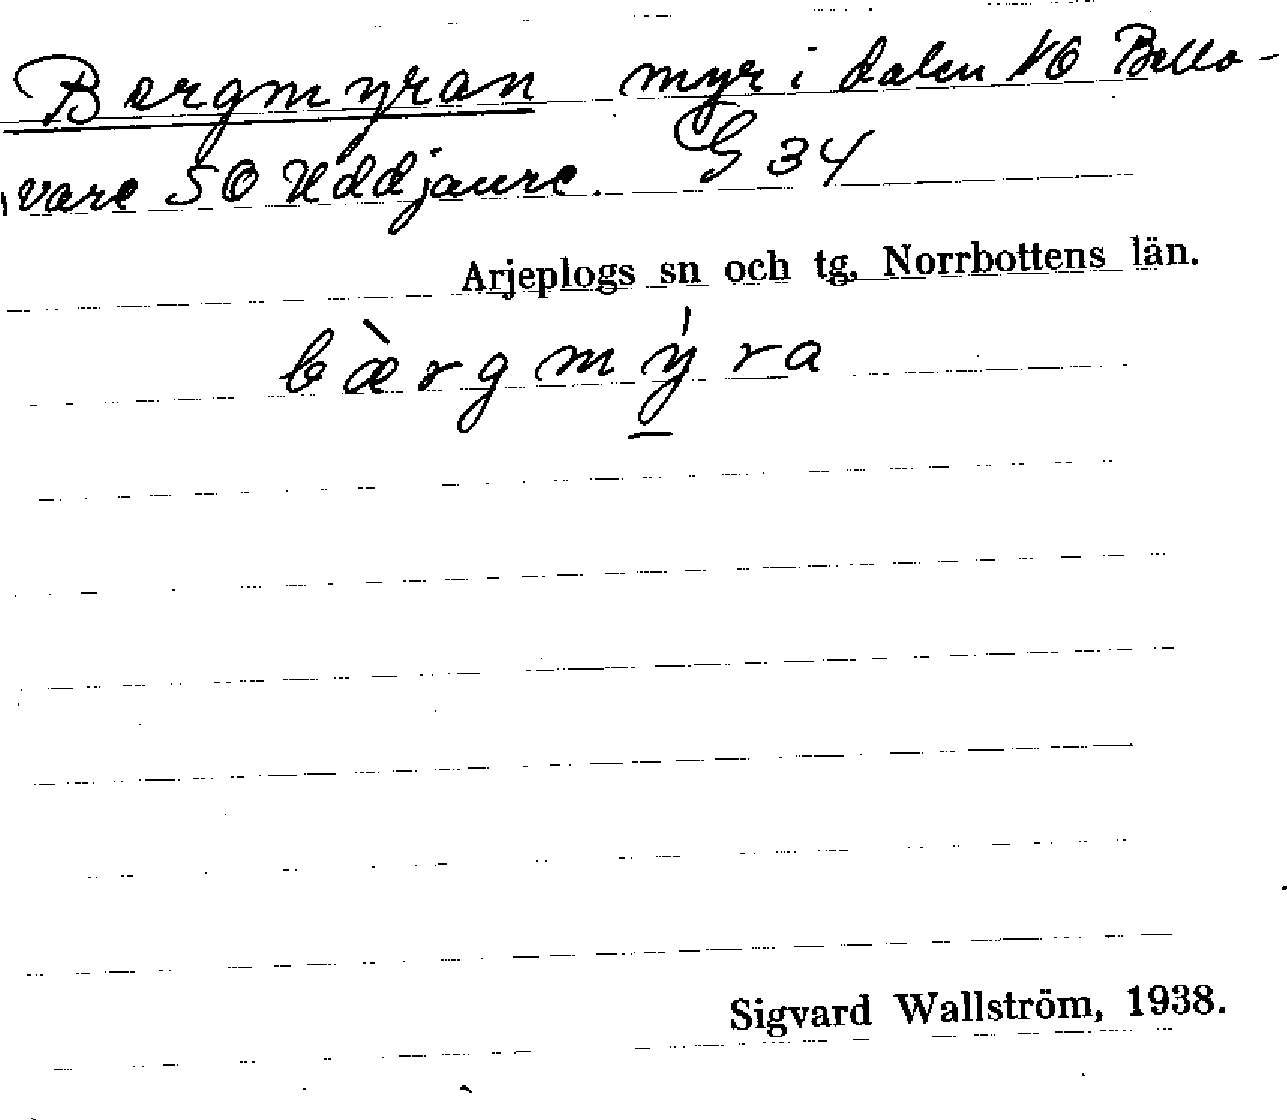 Bergmyran myr i dalen NO Bello-
vare SO Uddjaure. G 34
Arjeplogs sn och tg, Norrbottens län.
bæ̀rgmý̱ra
Sigvard Wallström, 1938.